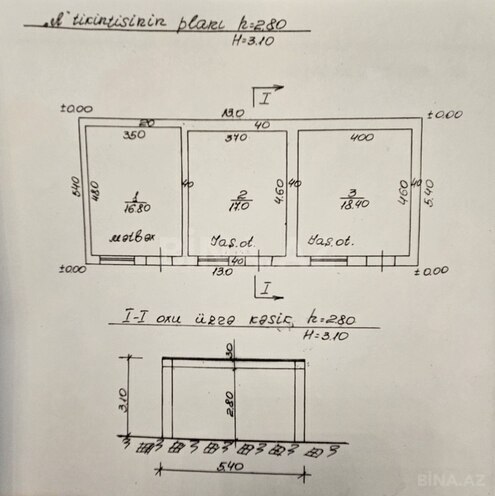 "A" tikintisinin planı h=2.80
H=3.10
I
±0.00 13.0 ±0.00
20 40
350 370 400
540 480 40 4.60 40 460 40 5.40
1 2 3
16.80 17.0 18.40
mətbəx Yaş.ot. Yaş.ot.
40
±0.00 13.0 ±0.00
I
I-I oxu üzrə kəsik, h=280
H=3.10
30
3.10 2.80
540
BINA.AZ